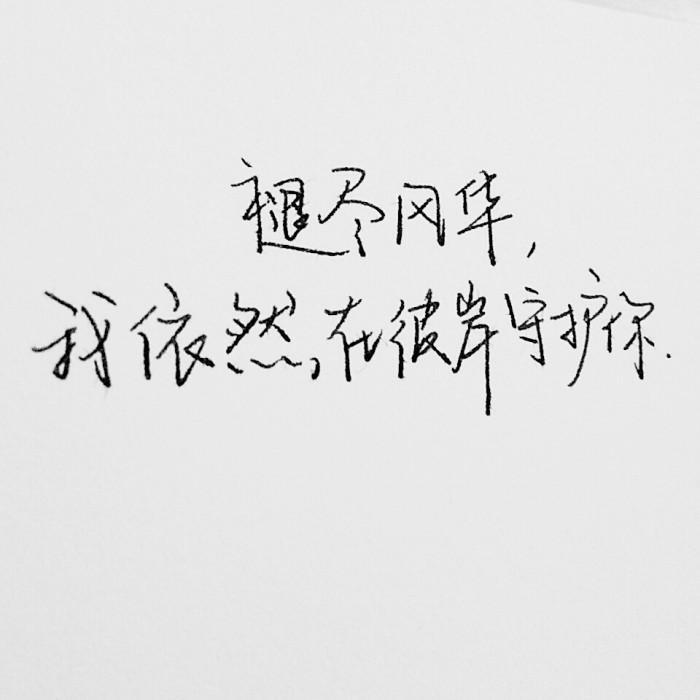 褪尽风华,
我依然,在彼岸守护你.